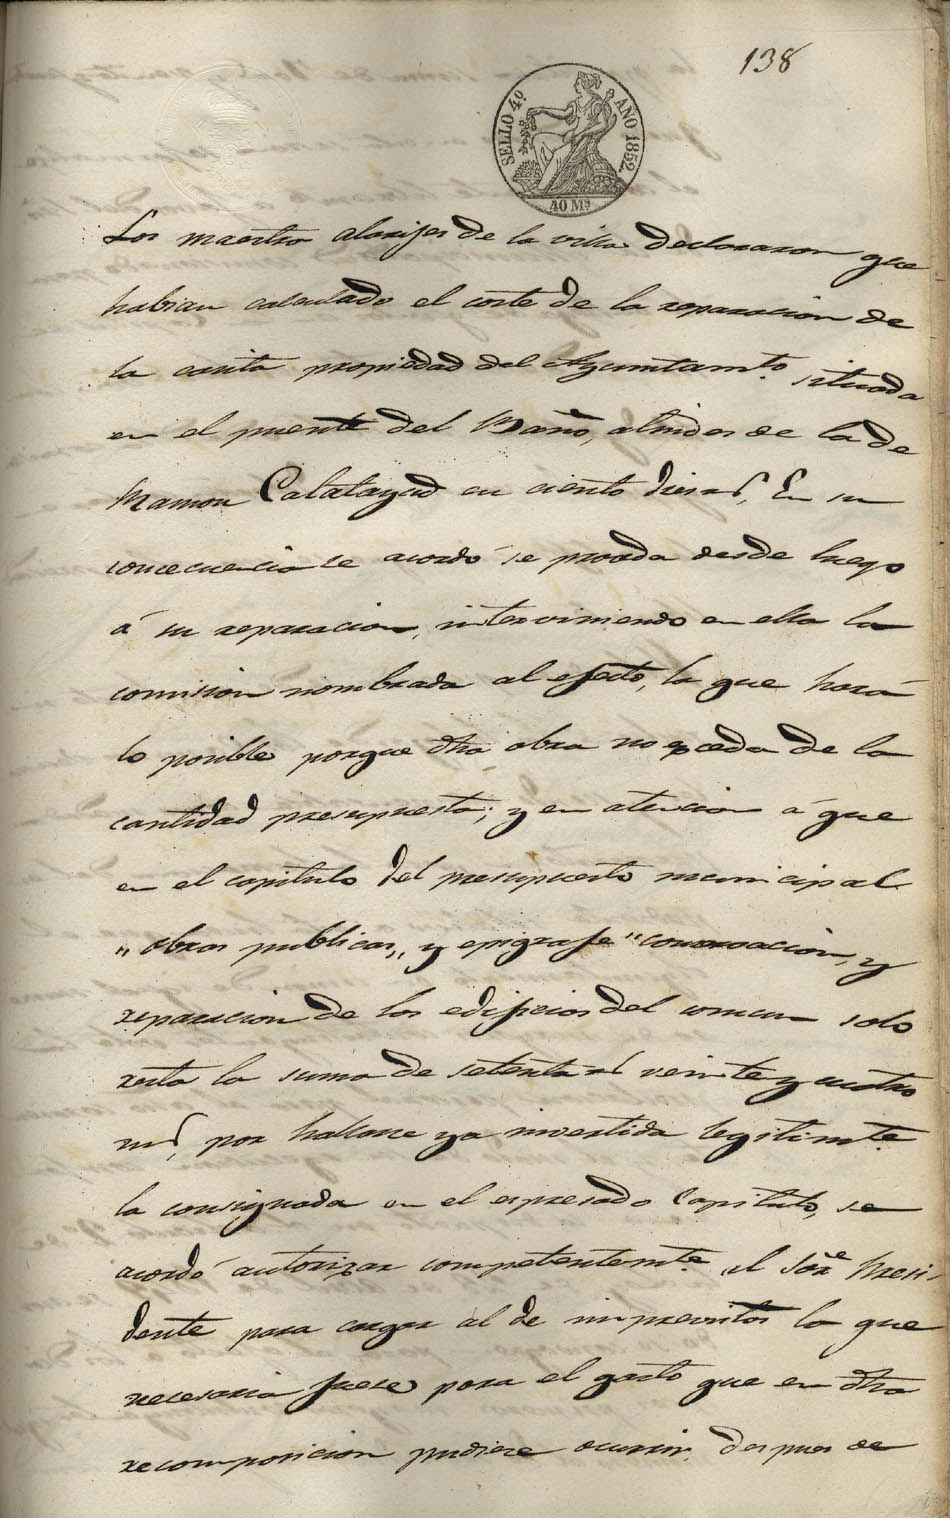 138
SELLO 4º AÑO 1852.
40 Ms
Los maestros alarifes de la villa declararon que
habian calculado el coste de la reparacion de
la casita propiedad del Ayuntamto. situada
en el puente del Baño, de la de
Ramon Calatayud en ciento diez rs, En su
consecuencia se acordó se proceda desde luego
á su reparacion, interviniendo en ella la
comision nombrada al efecto, la que hará
lo posible porque dha obra no exceda de la
cantidad presupuesta; y en atencion á que
en el capitulo del presupuesto municipal
"obras publicas," y epigrafe "conservacion, y
reparacion de los edificios del comun solo
resta la suma de setenta rs veinte y cuatro
ms, por hallarse ya invertida legitimte.
la consignada en el espresado Capitulo, se
acordó autorizar competentemte. al Sor. Presi-
dente para cargar al de imprevistos lo que
necesario fuese para el gasto que en dha
recomposicion pudiese ocurrir, despues de